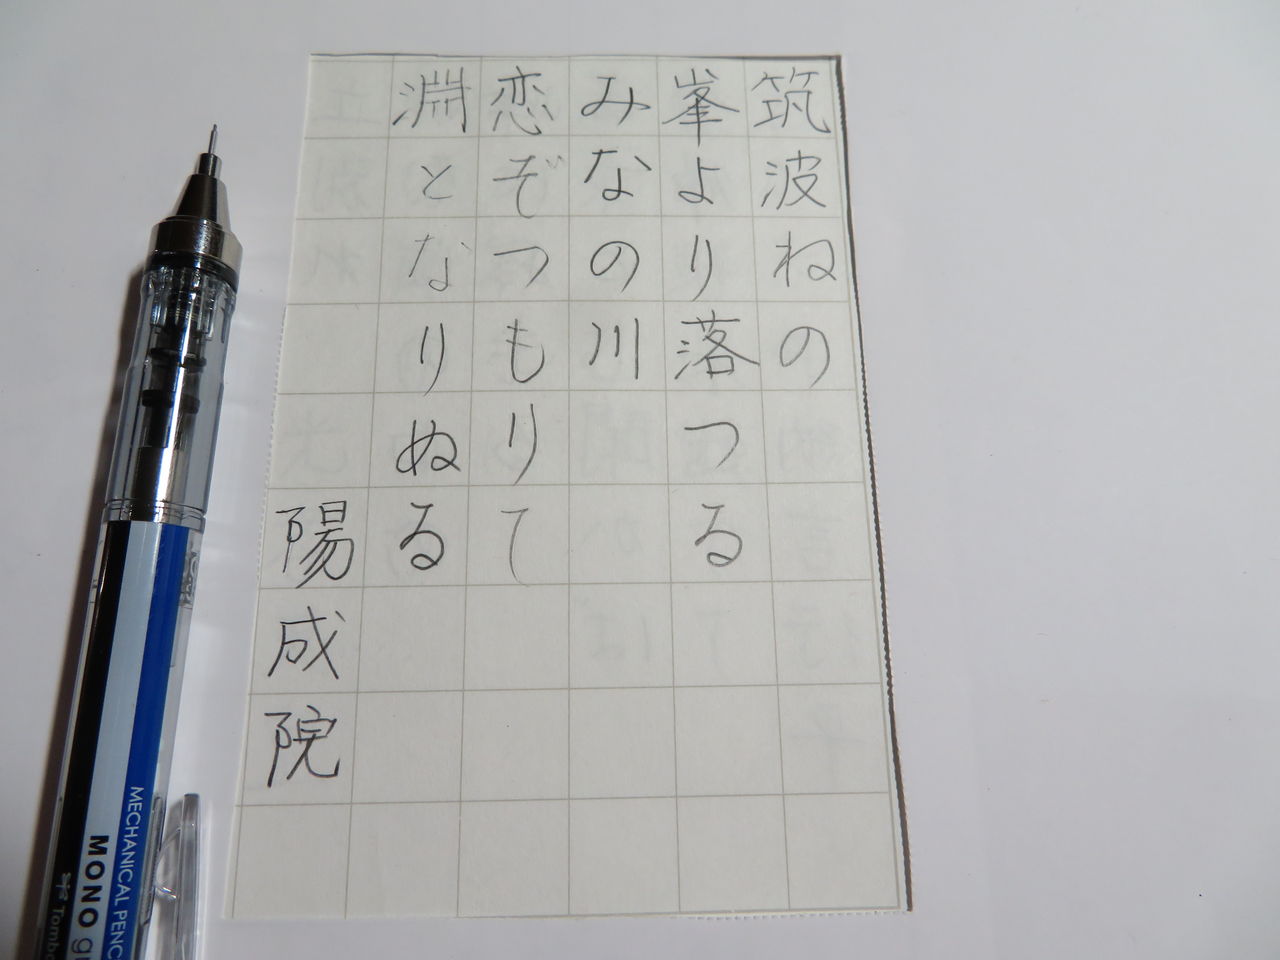 筑波ねの
峯より落つる
みなの川
恋ぞつもりて
淵となりぬる
陽成院
MECHANICAL PENC
MONO gr
Tombo